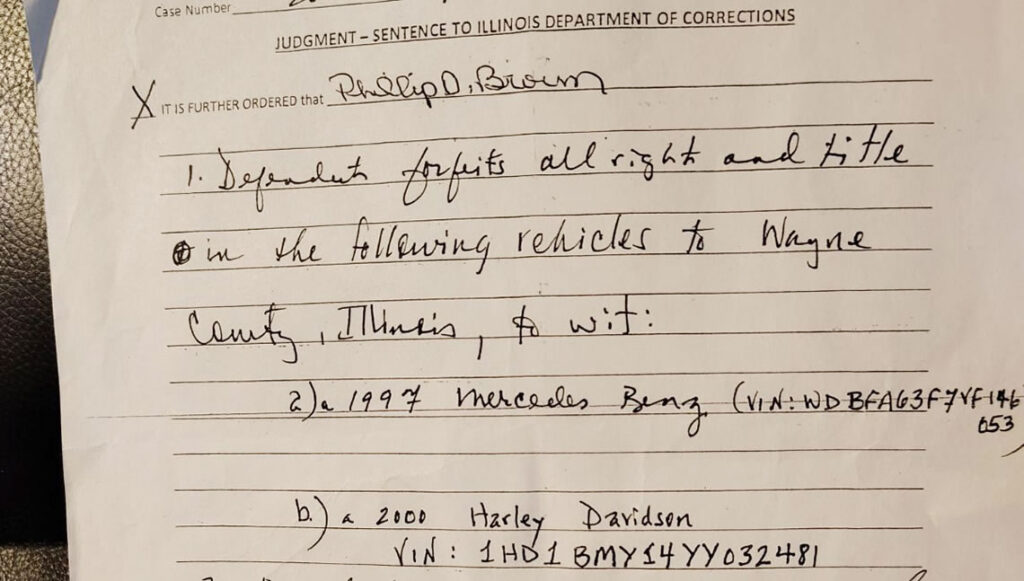 Case Number
JUDGMENT – SENTENCE TO ILLINOIS DEPARTMENT OF CORRECTIONS
X IT IS FURTHER ORDERED that Phillip D. Brown
1. Defendent forfeits all right and title
in the following vehicles to Wayne
County, Illinois, to wit:
a) a 1997 Mercedes Benz (VIN: WDBFA63F7VF146
053
b.) a 2000 Harley Davidson
VIN: 1HD1BMY14YY032481